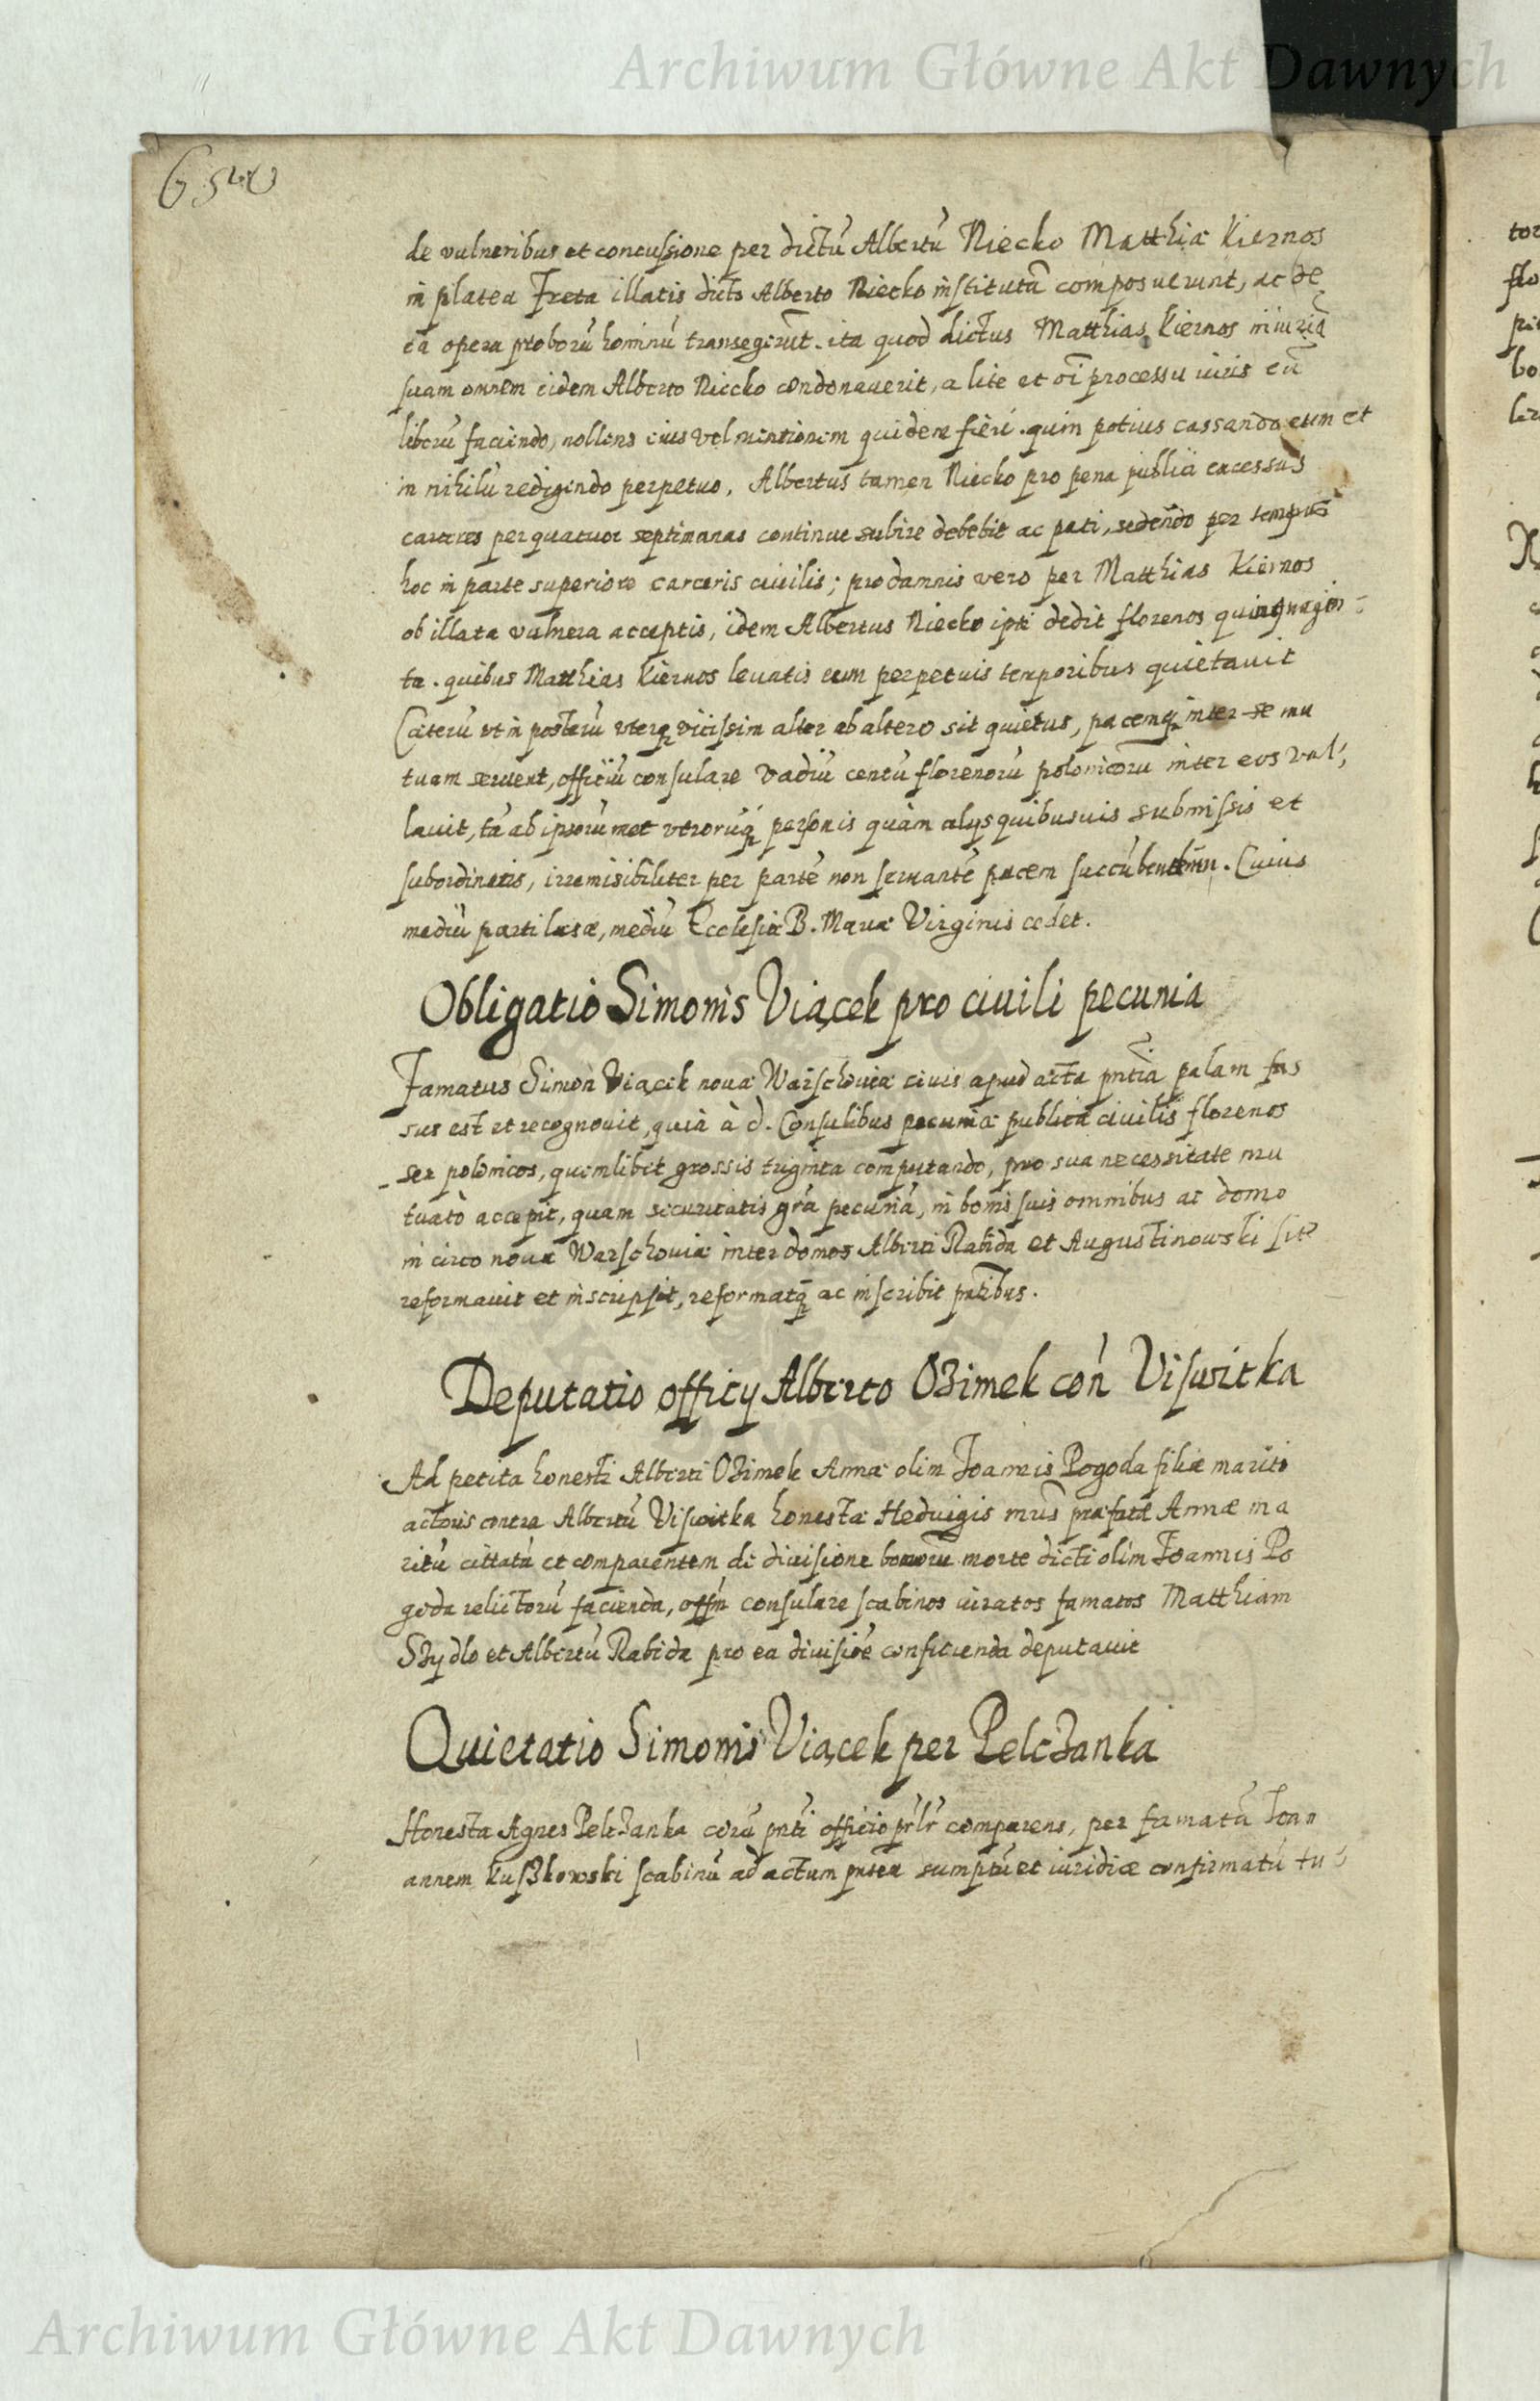 Archiwum Główne Akt Dawnych
de vulneribus et concussione per dictũ Albertũ Niecko Matthiæ Kiernos
in platea Freta illatis dicto Alberto Niecko institutã composuerunt, ac de
ea opera proborũ hominũ transegerũt. ita quod dictus Matthias Kiernos iniuriã
suam omnem eidem Alberto Niecko condonauerit, a lite et oĩ processu iuris eũ
liberũ faciendo, nollens eius vel mentionem quidem fieri. quin potius cassando eum et
in nihilũ redigendo perpetuo, Albertus tamen Niecko pro pena publici excessus
carceres per quatuor septimanas continue subire debebit ac pati, sedendo per tempus
hoc in parte superiore carceris ciuilis; pro damnis vero per Matthias Kiernos
ob illata vulnera acceptis, idem Albertus Niecko ipsi dedit florenos quinquagin=
ta. quibus Matthias Kiernos leuatis eum perpetuis temporibus quietauit
Cæterũ vt in posterũ vterq vicissim alter ab altero sit quietus, pacemq inter se mu
tuam seruent, officiũ consulare vadiũ centũ florenorũ polonicorũ inter eos val,
lauit, tã ab ipsorũmet vtrorũq personis quàm alijs quibusuis submissis et
subordinatis, irremisibiliter per partẽ non seruantẽ pacem succũbendum. Cuius
mediũ parti læsæ, mediũ Ecclesiæ B. Mariæ Virginis cedet.
Obligatio Simonis Viącek pro ciuili pecunia
Famatus Simon Viącek nouæ Warschouiæ ciuis apud acta pñtia palam fas
sus est et recognouit, quia à d. Consulibus pecuniæ publicæ ciuilis florenos
sex polonicos, quemlibet grossis triginta computando, pro sua necessitate mu
tuatò accepit, quam securitatis grã pecuniã, in bonis suis omnibus ac domo
in circo nouæ Warschouiæ inter domos Alberti Rabida et Augustinowski sit
reformauit et inscripsit, reformatq ac inscribit pñtibus.
Deputatio officij Alberto Ozimek con Viswitka
Ad petita honesti Alberti Ozimek Annæ olim Joannis Pogoda filiæ mariti
actoris contra Albertũ Viswitka honestæ Heduigis præfatæ Annæ ma
ritũ cittatũ et comparentem de diuisione bonorũ morte dicti olim Joannis Po
goda relictorũ facienda, offm consulare scabinos iuratos famatos Matthiam
Szydlo et Albertũ Rabida pro ea diuisiõe conficienda deputauit
Quietatio Simonis Viącek per Pelczanka
Honesta Agnes Pelczanka corã pñti officio comparens, per famatũ Joan
annem Kuszkowski scabinũ ad actum pñtem sumptũ et iuridicæ confirmatũ tu
Archiwum Główne Akt Dawnych